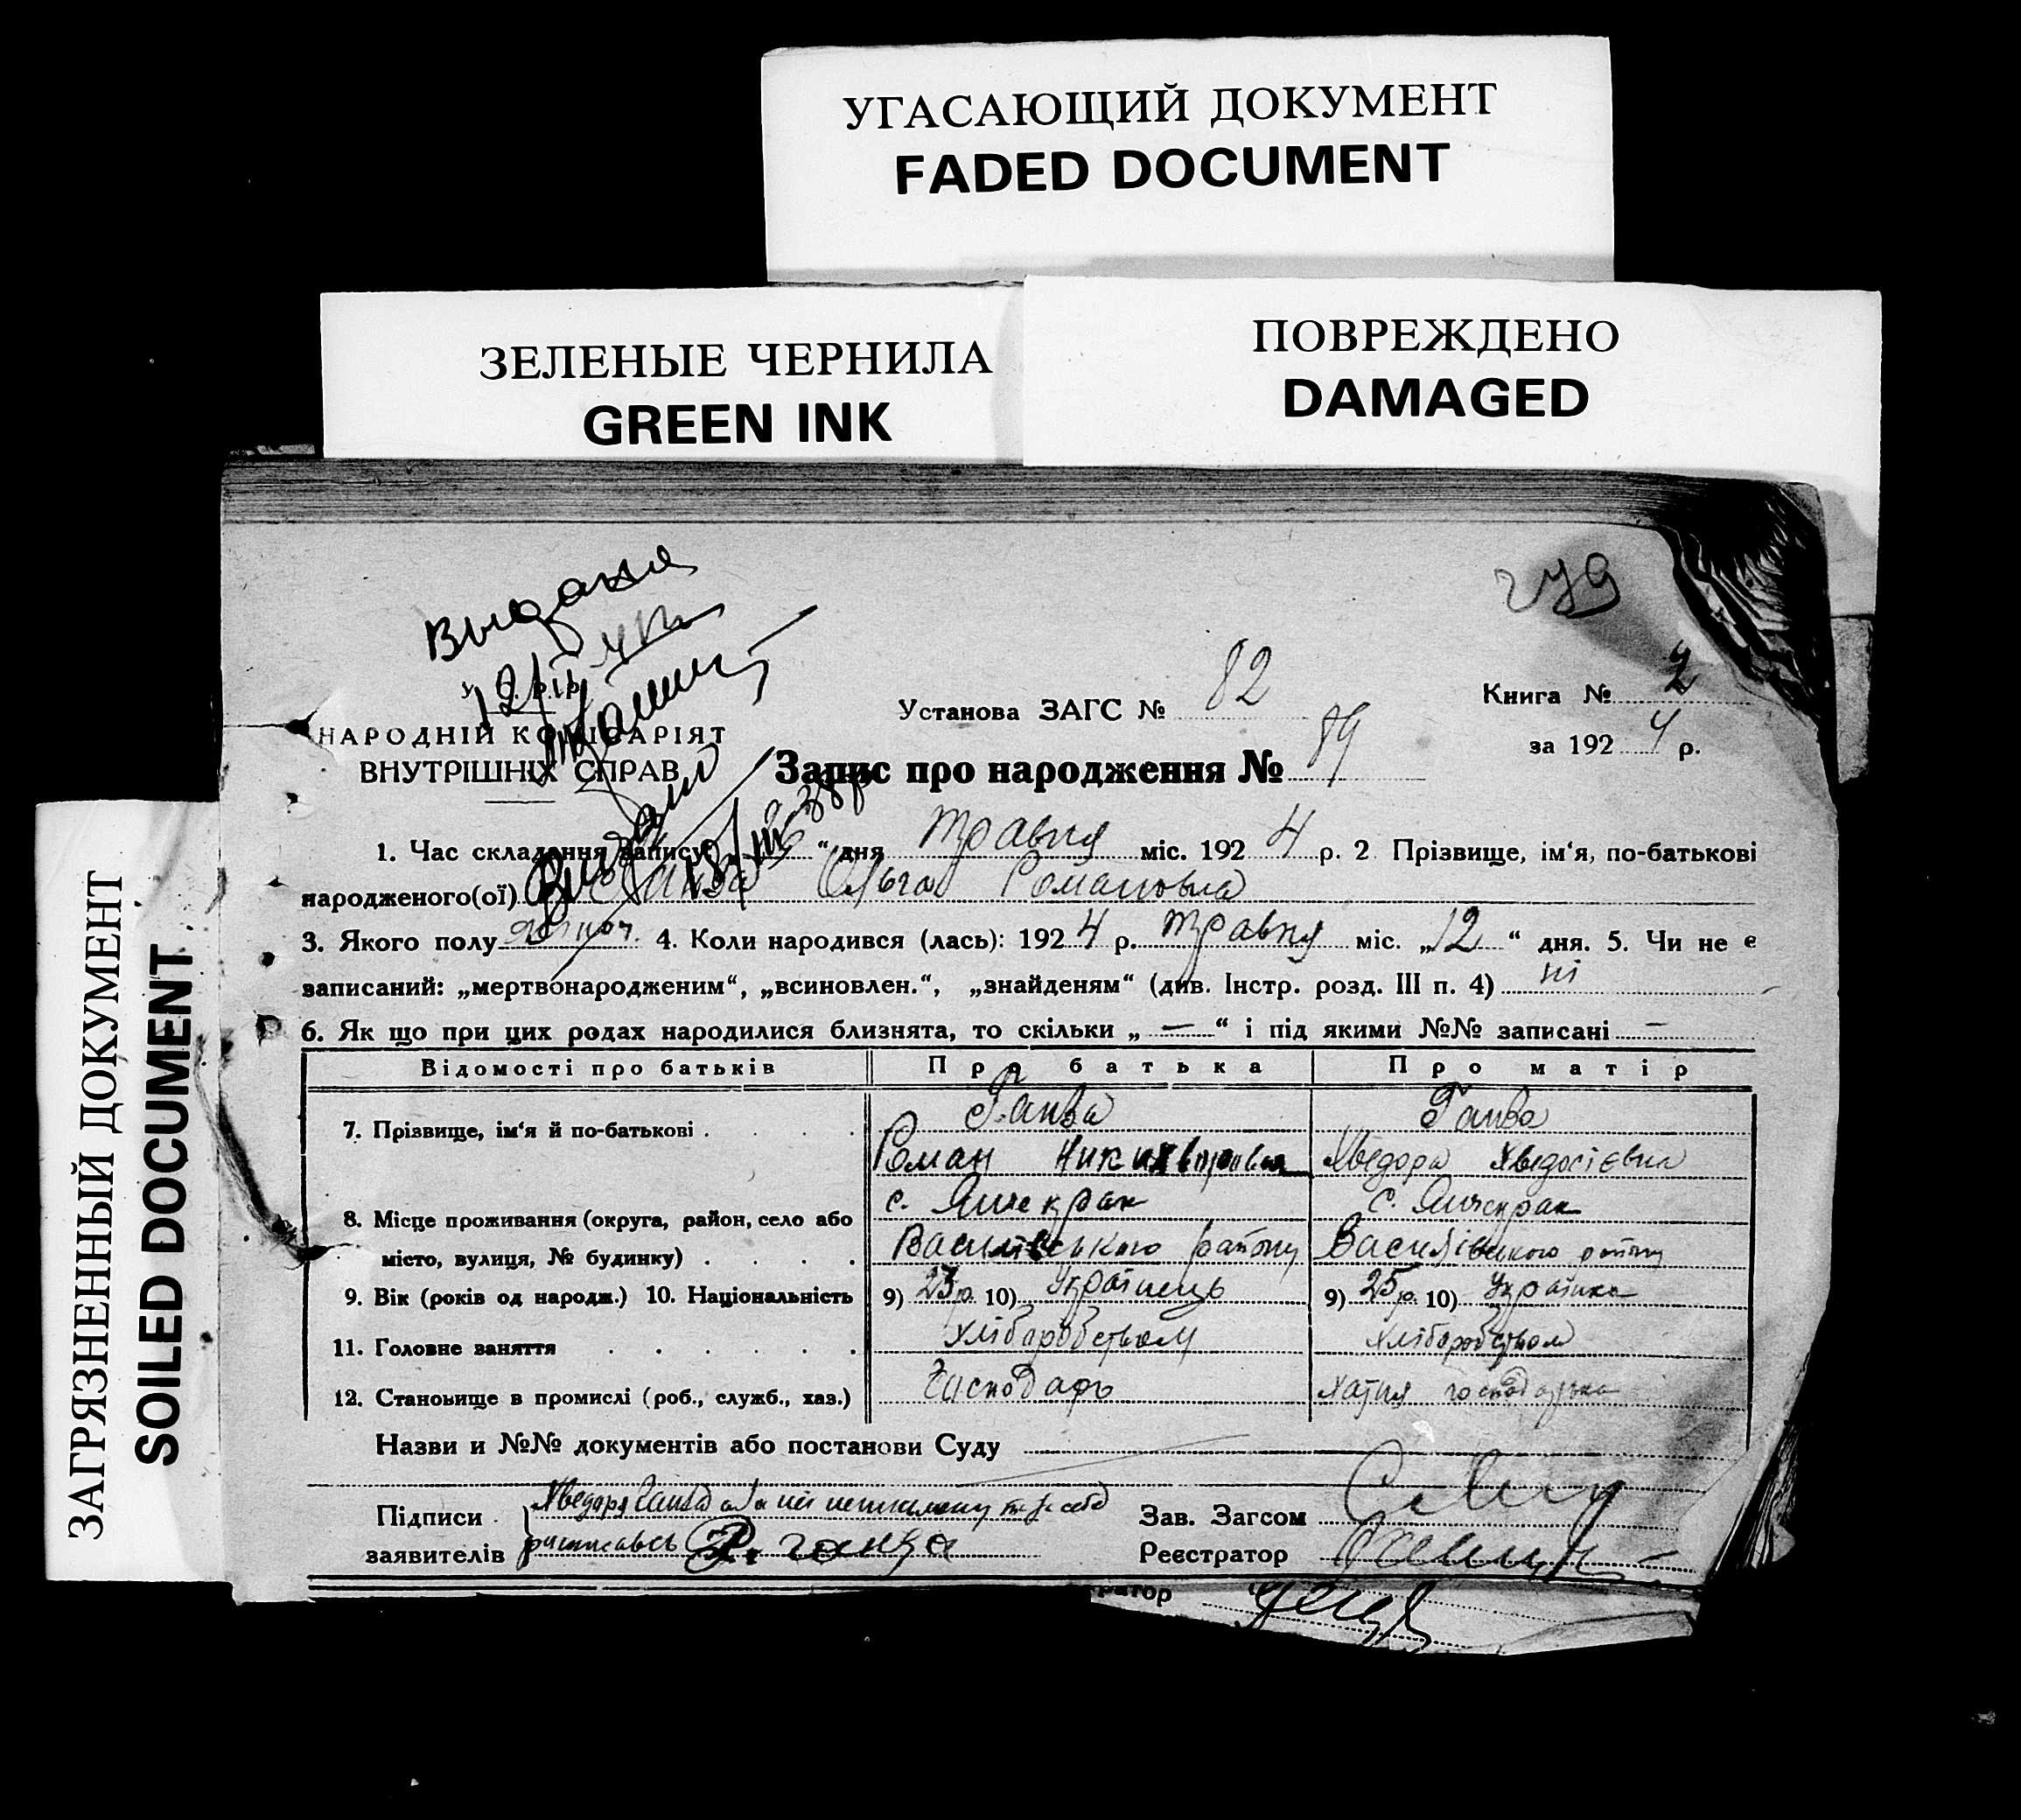 УГАСАЮЩИЙ ДОКУМЕНТ
FADED DOCUMENT
ЗЕЛЕНЫЕ ЧЕРНИЛА
GREEN INK
ПОВРЕЖДЕНО
DAMAGED
ЗАГРЯЗНЕННЫЙ ДОКУМЕНТ
SOILED DOCUMENT
279
Выдана
Установа ЗАГС № 82
Книга № 2
НАРОДНІЙ КОМІСАРІЯТ
за 192 4 р.
ВНУТРІШНІХ СПРАВ
Запис про народження № 84
Видано
1. Час складення запису „ “ дня травня міс. 192 4 р. 2 Прізвище, ім‘я, по-батькові
народженого(ої) Ганза Ольга Романовна
3. Якого полу жіноч. 4. Коли народився (лась): 192 4 р. травня міс. „12“ дня. 5. Чи не є
записаний: „мертвонародженим“, „всиновлен.“, „знайденям“ (див. Інстр. розд. III п. 4) ні
6. Як що при цих родах народилися близнята, то скільки „ — “ і під якими №№ записані —
Відомості про батьків Про батька Про матір
7. Прізвище, ім‘я й по-батькові . Ганза Ганза
Роман Никихворович Хведора Хведосієвна
8. Місце проживання (округа, район, село або с. Янчекрак с. Янчекрак
місто, вулиця, № будинку) . Василівського району Василівського району
9. Вік (років од народж.) 10. Національність 9) 23 р. 10) Українець 9) 25 р. 10) Українка
11. Головне заняття Хліборобством Хліборобством
12. Становище в промислі (роб., служб., хаз.) Господарь Хатня господарька
Назви и №№ документів або постанови Суду
Підписи Хведора Ганза а за неі неписьмену та за себе
заявителів росписавсь Р. Ганза
Зав. Загсом
Реєстратор
ратор